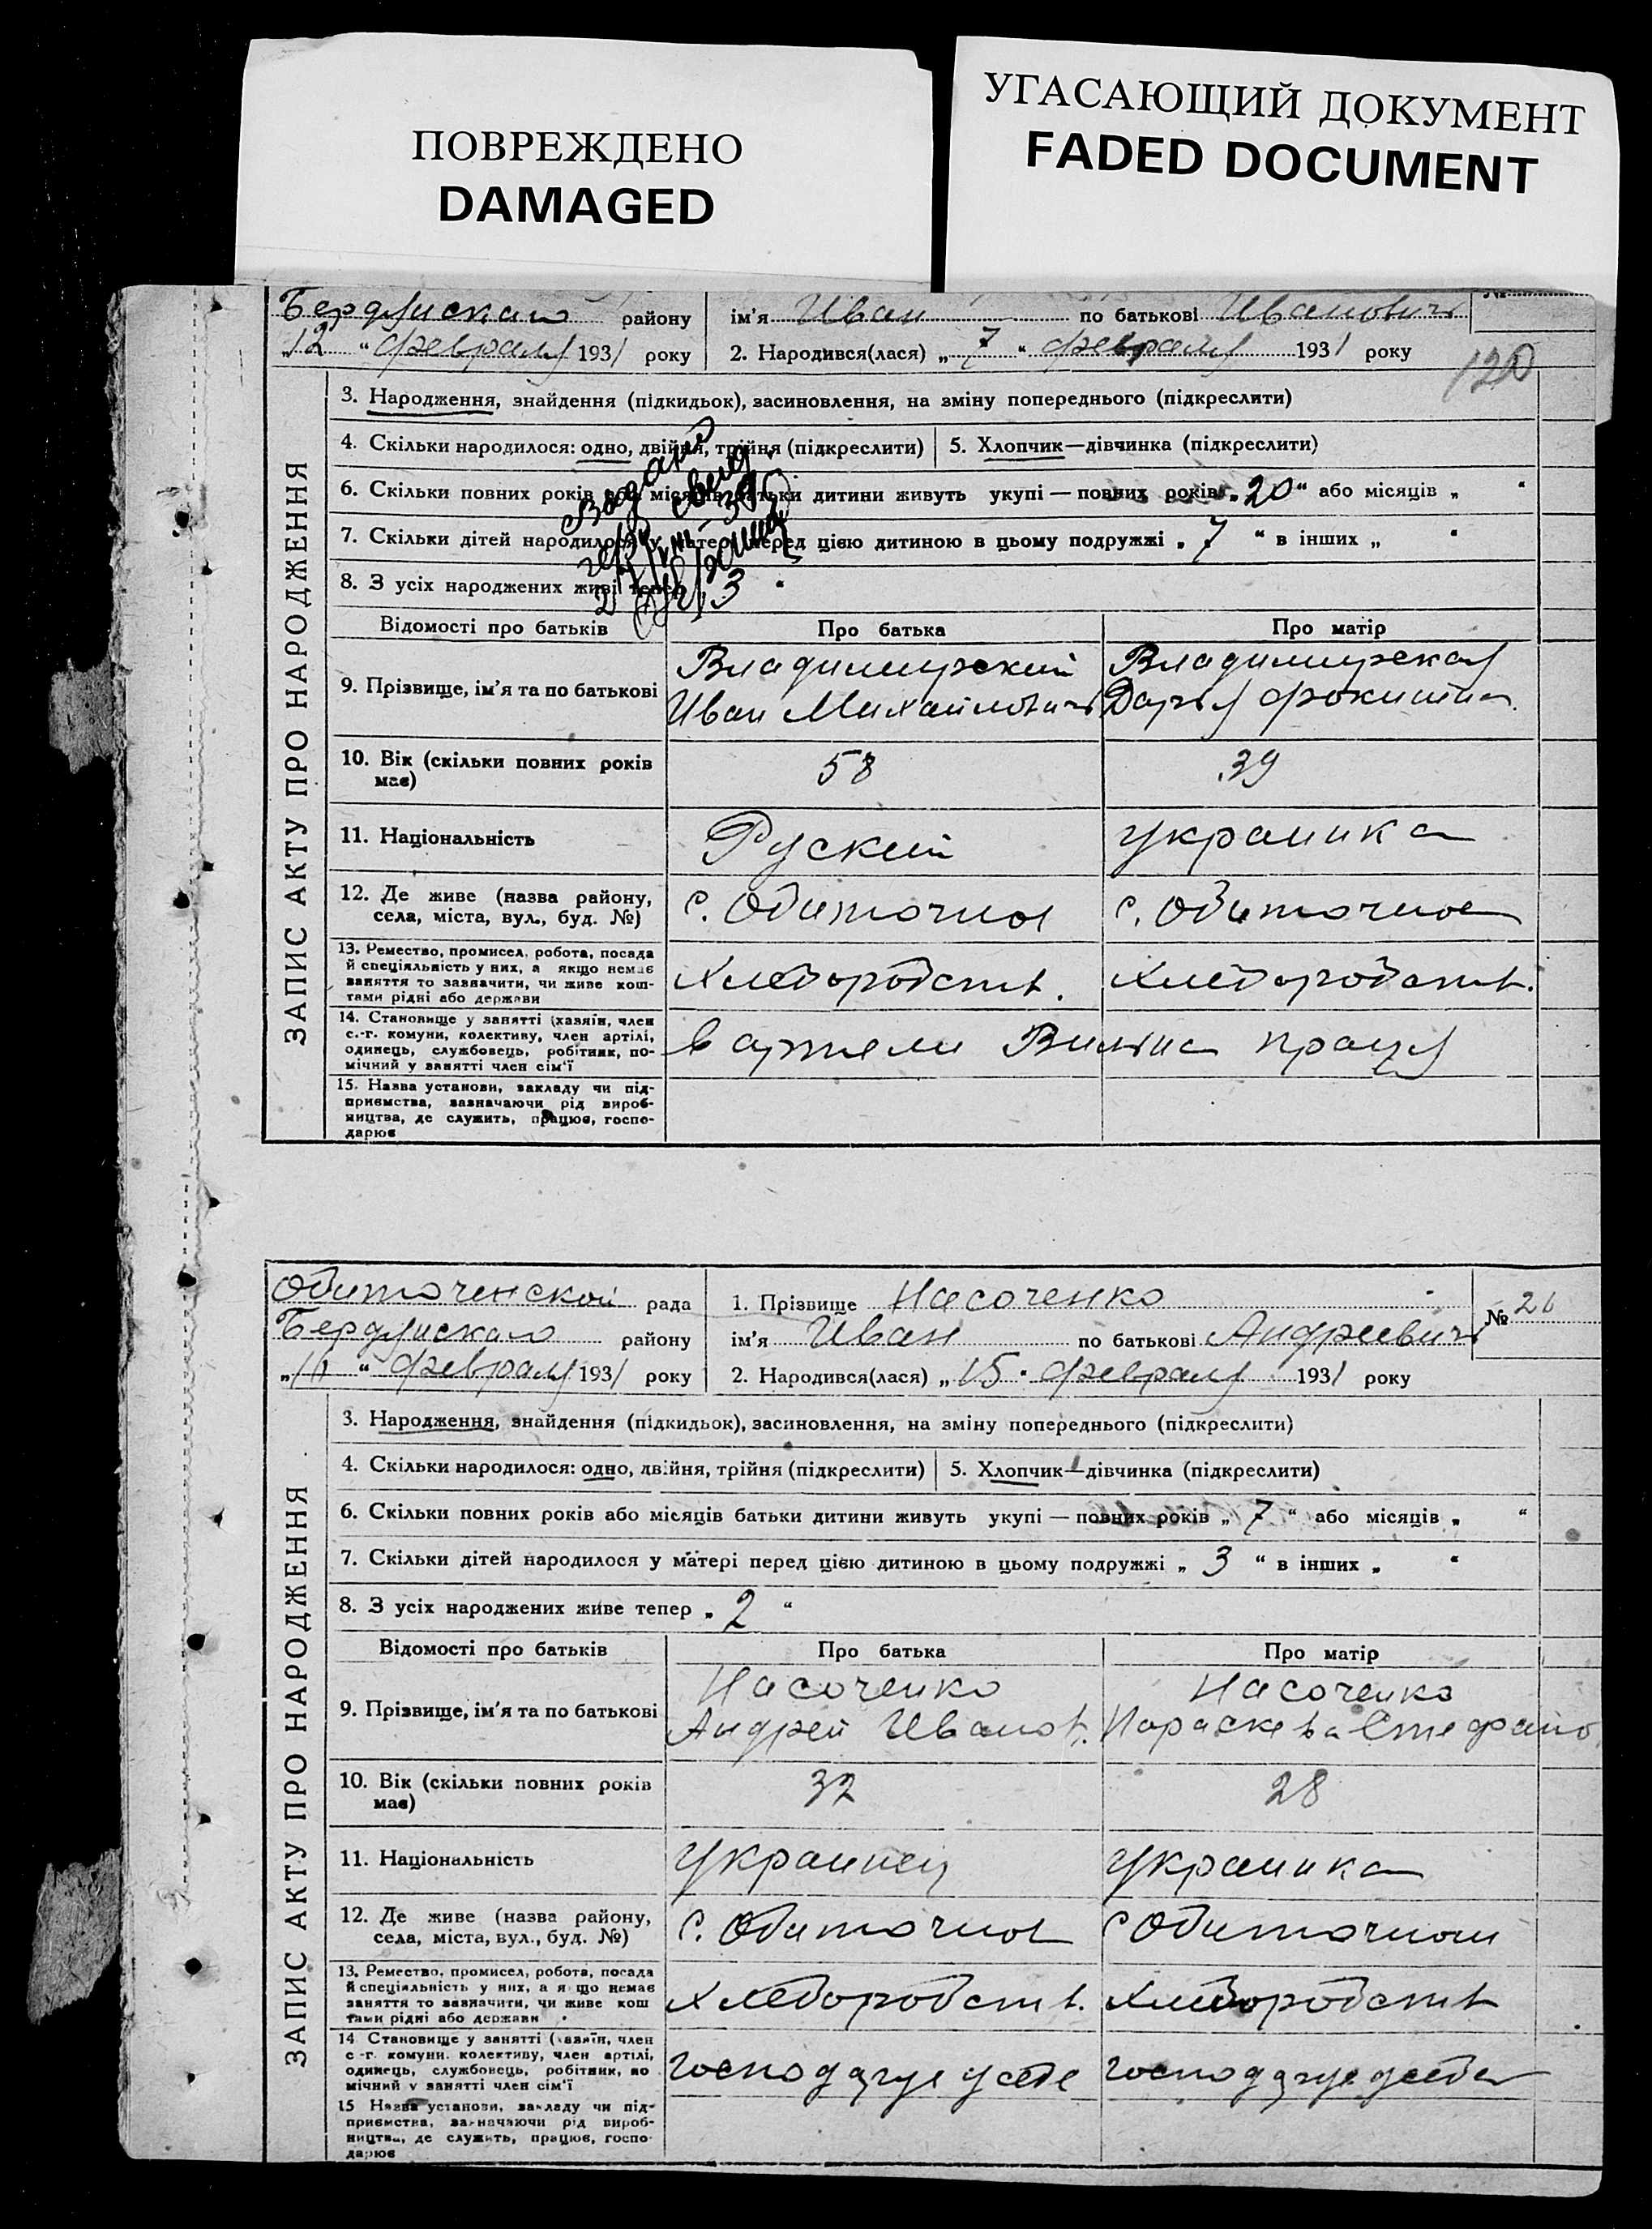 ПОВРЕЖДЕНО
DAMAGED
УГАСАЮЩИЙ ДОКУМЕНТ
FADED DOCUMENT
Бердянского району
ім'я Иван по батькові Иванович
„12“ февраля 1931 року
2. Народився(лася) „7“ февраля 1931 року
120
ЗАПИС АКТУ ПРО НАРОДЖЕННЯ
3. Народження, знайдення (підкидьок), засиновлення, на зміну попереднього (підкреслити)
4. Скільки народилося: одно, двійня, трійня (підкреслити)
5. Хлопчик—дівчинка (підкреслити)
6. Скільки повних років або місяців батьки дитини живуть укупі — повних років „20“ або місяців „ “
7. Скільки дітей народилося у матері перед цією дитиною в цьому подружжі „7“ в інших „ “
8. З усіх народжених живі тепер „3“
Відомості про батьків
Про батька
Про матір
9. Прізвище, ім'я та по батькові
Владимирский
Иван Михайлович
Владимирская
Дарья Фокишна
10. Вік (скільки повних років
має)
58
39
11. Національність
Руский
украинка
12. Де живе (назва району,
села, міста, вул., буд. №)
с. Обиточное
с. Обиточное
13. Ремество, промисел, робота, посада
й спеціяльність у них, а якщо немає
заняття то зазначити, чи живе кош-
тами рідні або держави
Хлеборобств.
Хлеборобств.
14. Становище у занятті (хазяїн, член
с.-г. комуни, колективу, член артілі,
одинець, службовець, робітник, по-
мічний у занятті член сім'ї
в артели Вильна праця
15. Назва установи, закладу чи під-
приємства, зазначаючи рід вироб-
ництва, де служить, працює, госпо-
дарює
Обиточенской рада
1. Прізвище Насоченко
№ 26
Бердянского району
ім'я Иван по батькові Андреевич
февраля 1931 року
2. Народився(лася) „15“ февраля 1931 року
ЗАПИС АКТУ ПРО НАРОДЖЕННЯ
3. Народження, знайдення (підкидьок), засиновлення, на зміну попереднього (підкреслити)
4. Скільки народилося: одно, двійня, трійня (підкреслити)
5. Хлопчик—дівчинка (підкреслити)
6. Скільки повних років або місяців батьки дитини живуть укупі — повних років „7“ або місяців „ “
7. Скільки дітей народилося у матері перед цією дитиною в цьому подружжі „3“ в інших „ “
8. З усіх народжених живе тепер „2“
Відомості про батьків
Про батька
Про матір
9. Прізвище, ім'я та по батькові
Насоченко
Андрей Иванов.
Насоченко
Параскева Стефано.
10. Вік (скільки повних років
має)
32
28
11. Національність
Украинец
украинка
12. Де живе (назва району,
села, міста, вул., буд. №)
с. Обиточное
с Обиточном
13. Ремество, промисел, робота, посада
й спеціяльність у них, а якщо немає
заняття то зазначити, чи живе кош
тами рідні або держави
Хлеборобств.
Хлеборобств
14 Становище у занятті (хазяїн, член
с-г. комуни. колективу, член артілі,
одинець, службовець, робітник, по
мічний у занятті член сім'ї
господарує у себе
господарує у себе
15 Назва установи, закладу чи під-
приємства, зазначаючи рід вироб-
ництва, де служить, працює, госпо-
дарює